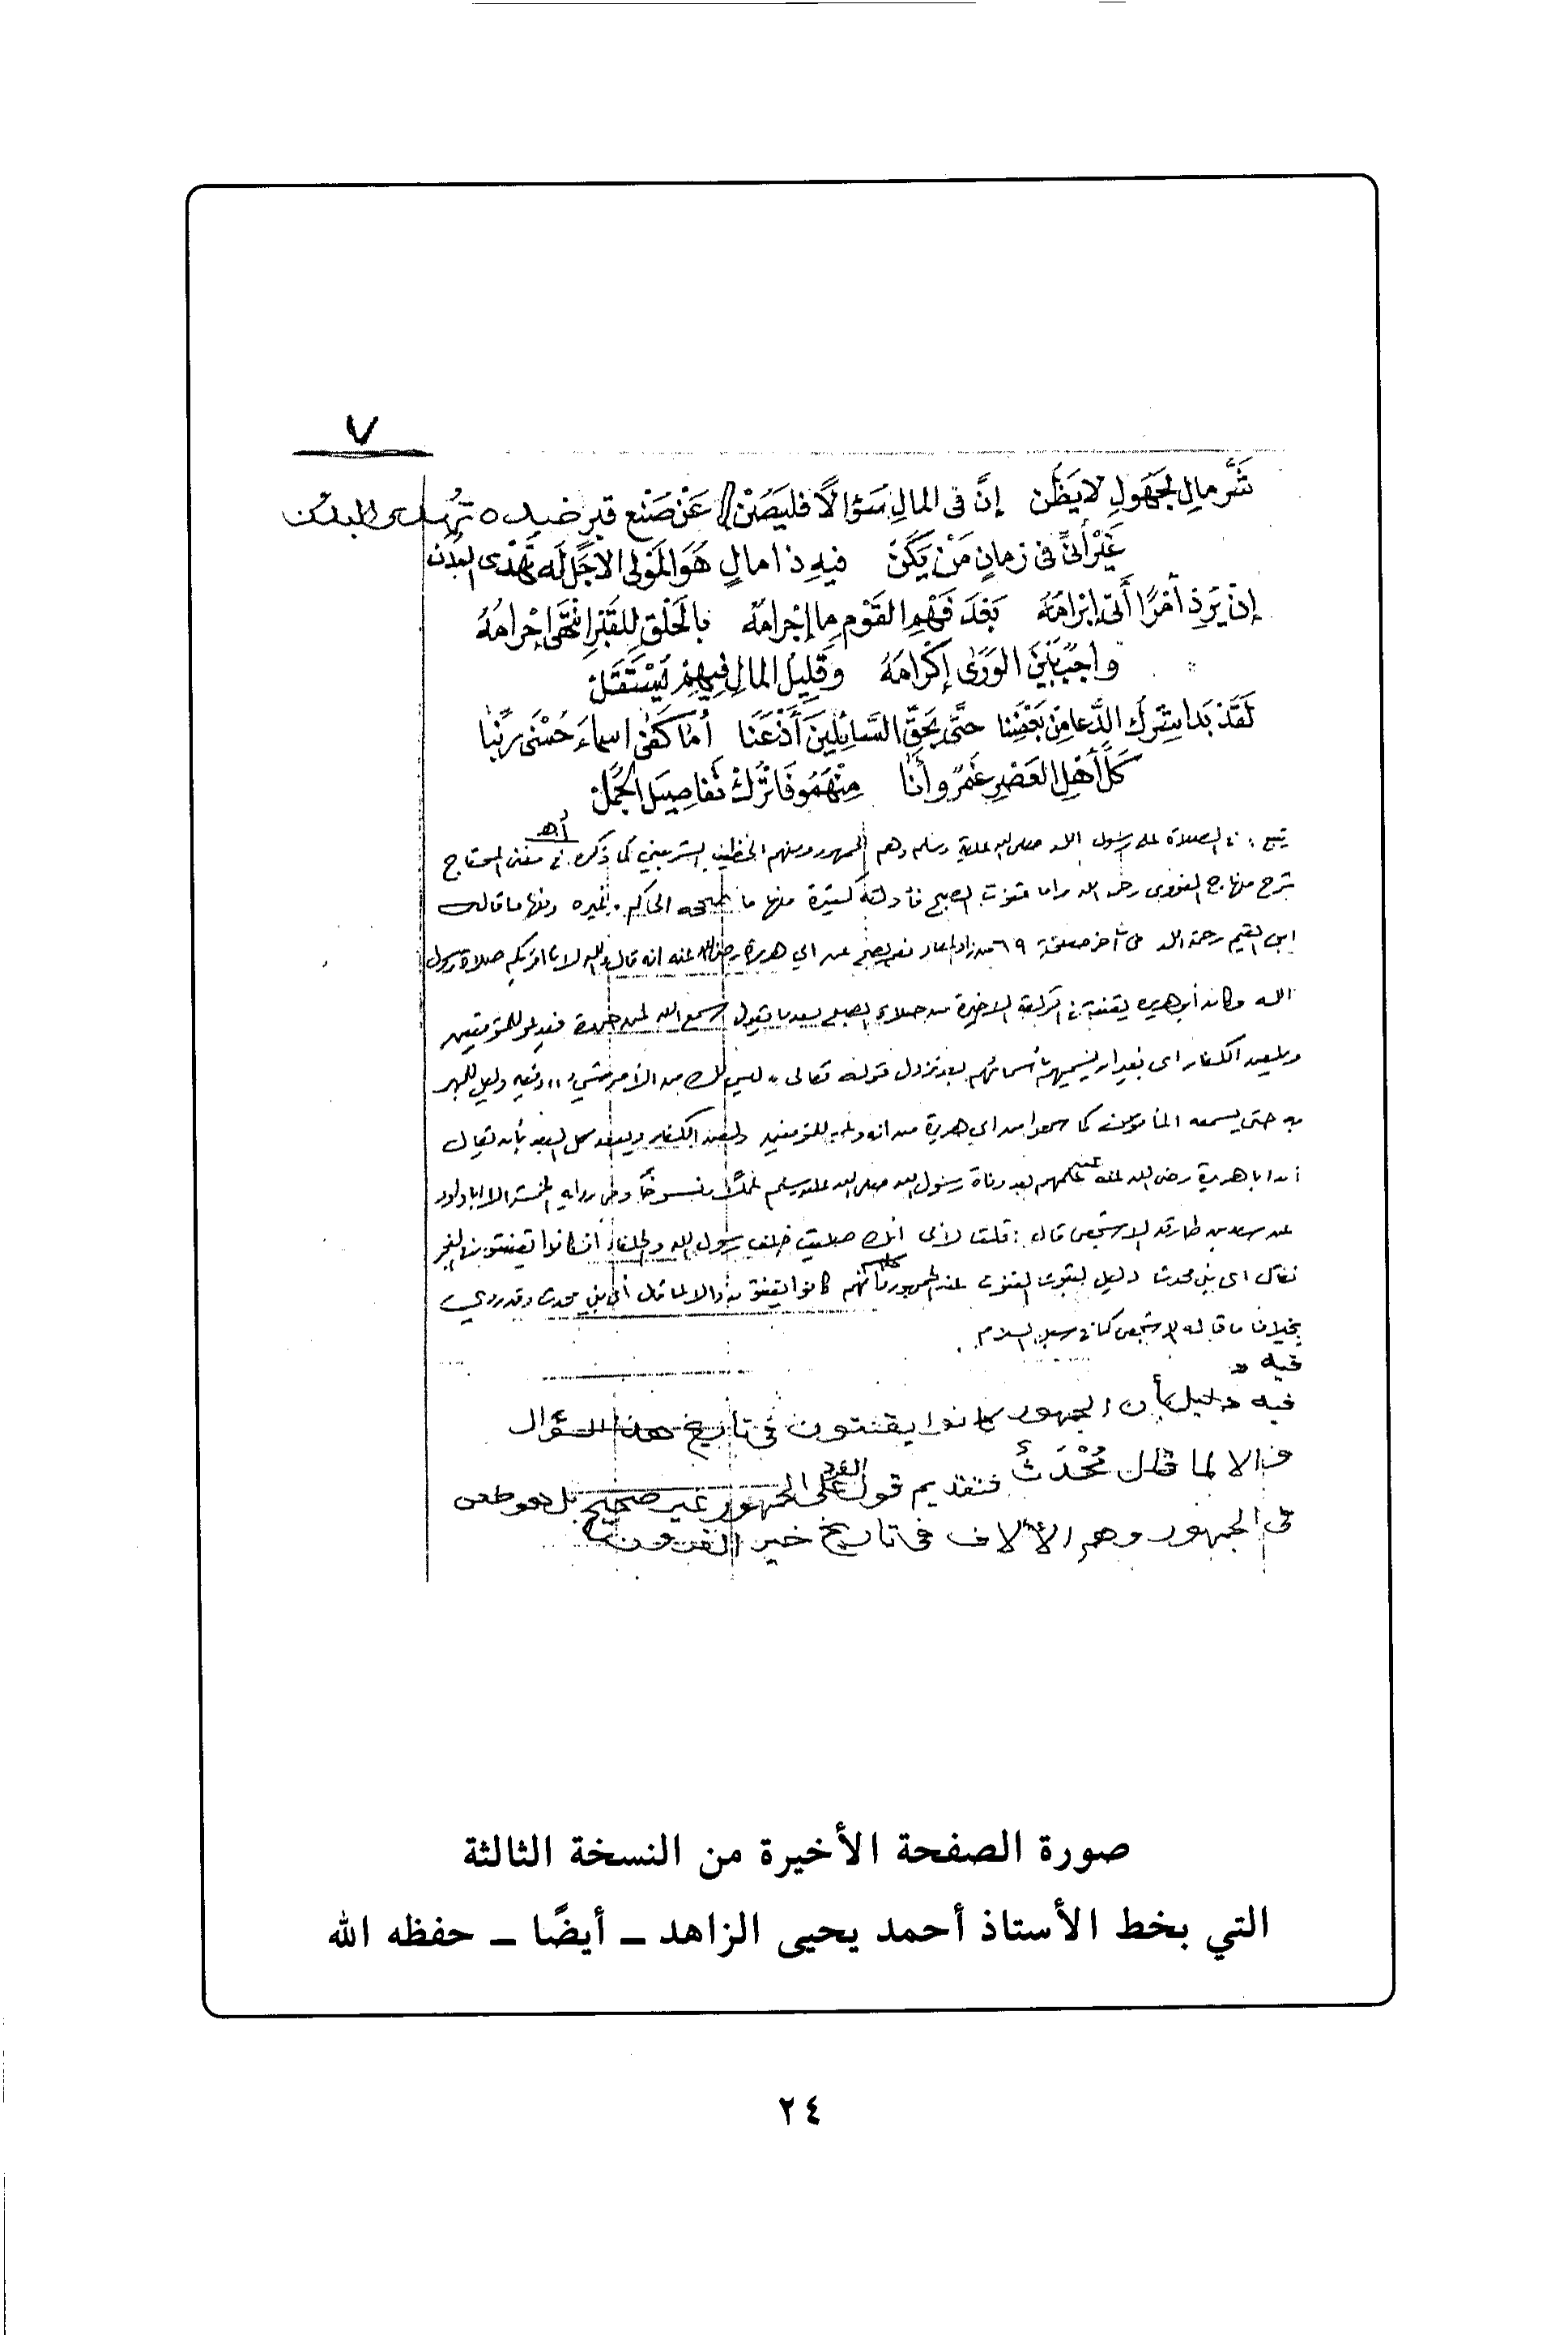 ٧
شَرُّ مالٍ لجَهُولٍ لا يَظُن إنَّ في المالِ سَؤالًا فليَصُنْ عَنْ صَنْع قبرٍ
غَيْرَ أنّي في زمانٍ مَنْ يَكُنْ فيهِ ذا مالٍ هَوَ المَولى الأجَلّ له تُهْدَى البُدن
إنْ يَرِدْ أمْرًا أتى إبْرامَهُ بَعْدَ فَهْمِ القَوْمِ ما إجْرامُهُ بالخَلْقِ للقَبْرِ انتهَى إحْرامُهُ
واجبٌ بَيْنَ الوَرَى إكْرامَهُ وقَلِيلُ المالِ فِيهِمْ يُسْتَقَلْ
لَقَدْ بَدا شِرْكُ الدُّعا مِنْ بَعْضِنا حتَّى بحَقِّ السَّائِلينَ أذْعَنَا أمَا كَفَى اسماءَ حُسْنَى ربِّنا
كلُّ أهْلِ العَصْرِ غَمْرٌ وأنَا مِنْهَمُو فَاتْرُكْ تَفاصِيلَ الجُمَلْ
الصلاة على رسول الله صلى الله عليه وسلم وهم الجمهور ومنهم الخطيب الشربيني كما ذكره في مغني المحتاج اهـ
شرح منهاج النووي رحمه الله واما قنوت الصبح فأدلته كثيرة منها ما صححه الحاكم وغيره ومنها ما قاله
ابن القيم رحمه الله في آخر صفحة ٦٩ من زاد المعاد عن ابي هريرة رضي الله عنه انه قال والله لانا اقربكم صلاة برسول
الله وكان أبو هريرة يقنت في الركعة الاخيرة من صلاة الصبح بعدما يقول سمع الله لمن حمده فيدعو للمؤمنين
ويلعن الكفار اي بغير ان يسميهم بأسمائهم بعد نزول قوله تعالى ليس لك من الأمر شيء وفيه دليل للجهر
به حتى يسمعه المأمومون كما سمعوا من ابي هريرة
ابا هريرة رضي الله عنه بعد وفاة رسول الله صلى الله عليه وسلم منسوخًا وفي رواية الخمسة الا ابا داود
عن سعد بن طارق الاشجعي قال : قلت لأبي انك صليت خلف رسول الله والخلفاء أفكانوا يقنتون في الفجر
فقال اي بني محدث دليل لثبوت القنوت عند الجمهور كانوا يقنتون والا لما قال أي بني محدث وقد روي
بخلاف ما قاله الاشجعي كما في سبل السلام .
فيه
فيه دليل بأن الجمهور كانوا يقنتون في تاريخ هذا السؤال
والا لما قال مُحْدَثٌ فتقديم قول الفرد على الجمهور غير صحيح بل هو طعن
في الجمهور وهم الألاف في تاريخ خير القرون
صورة الصفحة الأخيرة من النسخة الثالثة
التي بخط الأستاذ أحمد يحيى الزاهد ـ أيضًا ـ حفظه الله
٢٤